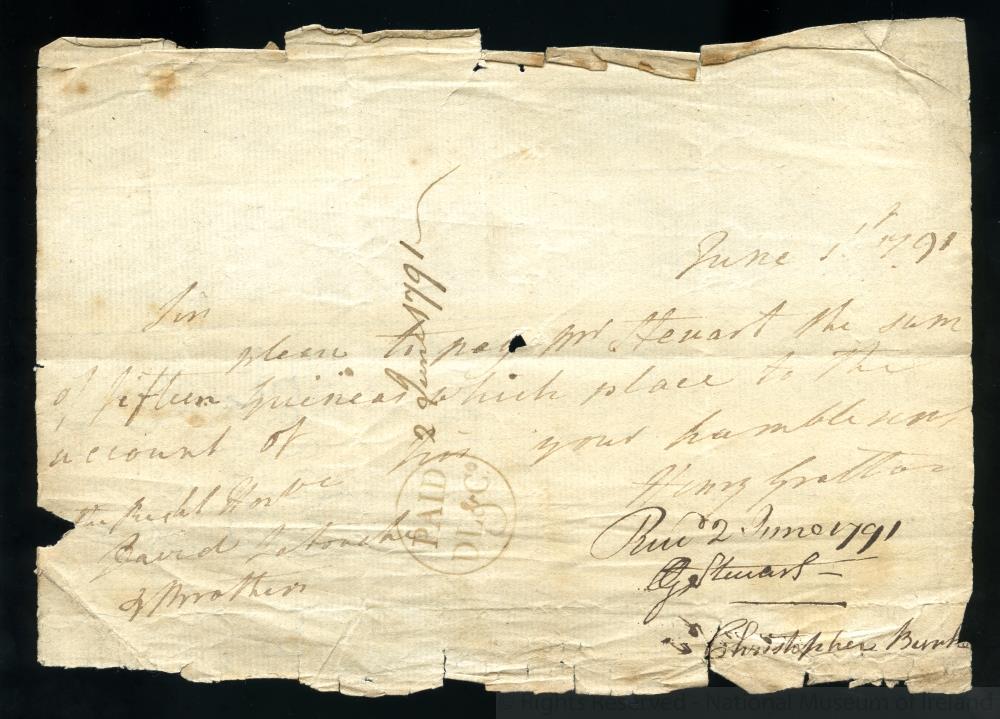 June 1st 1791
Sir
please to pay Mr Stewart the sum
of fifteen Guineas which place to the
account of Sir your humble servt
Henry Grattan
The Right Honble
David Latouche
& Brothers
2 June 1791
PAID
DL & Co
Recd 2 June 1791
Stewart
Christopher
© Rights Reserved - National Museum of Ireland